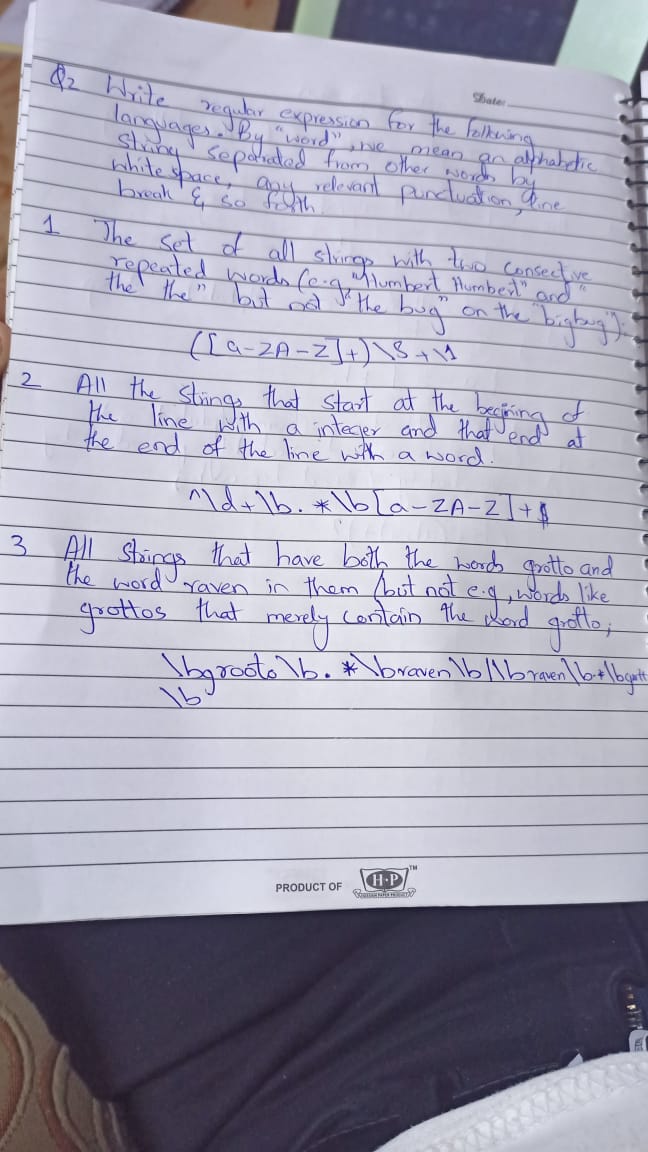 Date:
Q2 Write regular expression for the following
languages. By "word", we mean an alphabetic
string separated from other words by
whitespace, any relevant punctuation, line
break & so forth
1 The set of all strings with two consective
repeated words (e.g "Humbert Humbert" and "
the the" but not "the bug" on the "bigbug"):
([a-zA-Z]+)\S+\1
2 All the strings that start at the begining of
the line with a integer and that end at
the end of the line with a word.
^\d+\b.*\b[a-zA-Z]+$
3 All strings that have both the words grotto and
the word raven in them (but not e.g, words like
grottos that merely contain the word grotto;
\bgrooto\b.*\braven\b|\braven\b.*\bgott
\b
PRODUCT OF H·P TM